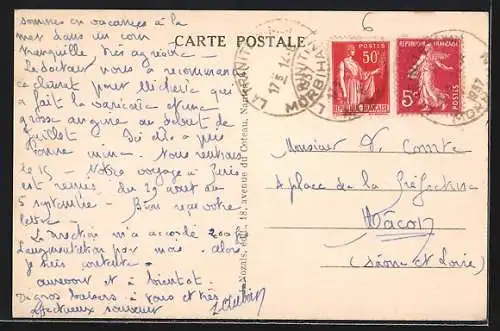 sommes en vacances à la
mer dans un coin
tranquille très agréable
Le docteur nous a recommandé
ce climat pour Micheric qui
a fait la varicelle et une
grosse angine au début de
Juillet
bonne mine. Nous rentrons
le 15 - Notre voyage à Paris
est remis du 29 août au
5 septembre - Bien reçu votre
lettre -
La Direction m'a accordé 200 frs
d'augmentation par mois. Alors
je suis contente -
au revoir et à bientôt.
De gros baisers à vous et très
affectueux souvenir
CARTE POSTALE
18, avenue du Coteau, Nantes
LA TRINITÉ
MORBIHAN
50c
POSTES
RÉPUBLIQUE FRANÇAISE
RÉPUBLIQUE FRANÇAISE
5c
POSTES
1937
6
Monsieur V. Comte
4 place de la Préfecture
Mâcon
(Saône et Loire)